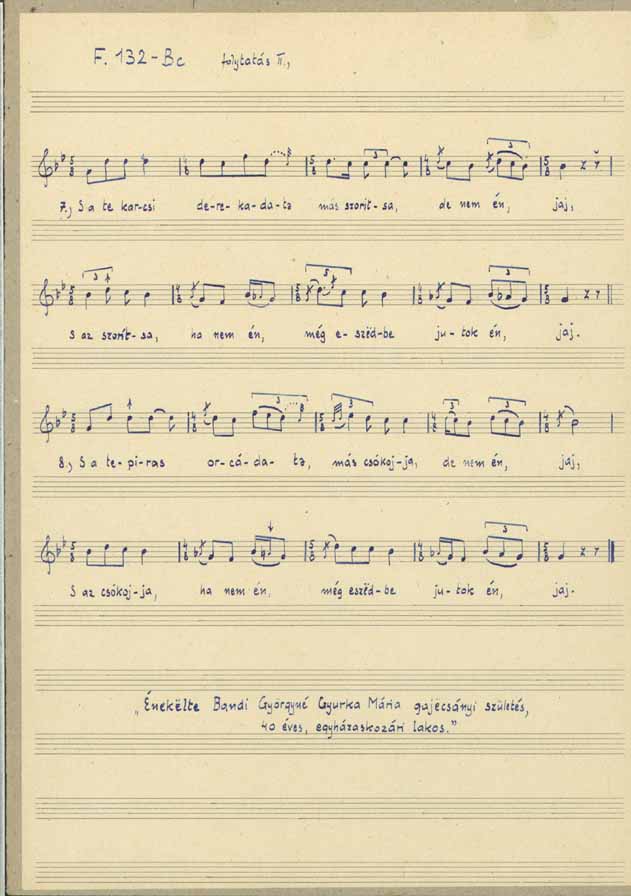 F. 132-Bc folytatás II.,
7., S a te kar-csi de-re-ka-da-tə más szorít-sa, de nem én, jaj,
S az szorít-sa, ha nem én, még e-szëd-be ju-tok én, jaj.
8., S a te-pi-ras or-cá-da-tə, más csókoj-ja, de nem én, jaj,
S az csókoj-ja, ha nem én, még eszëd-be ju-tok én, jaj.
„Énekëlte Bandi Györgyné Gyurka Mária gajëcsányi születés,
40 éves, egyházaskozári lakos."